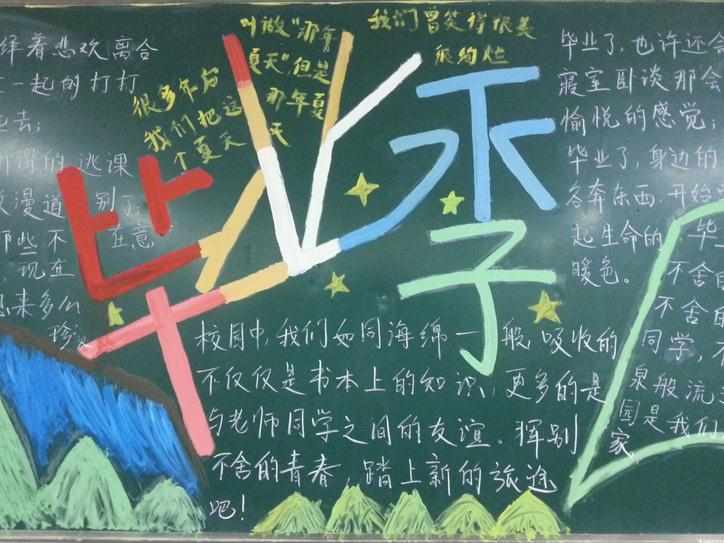 毕业季
我们曾笑得很美
很灿烂
很多年后
我们把这
个夏天
叫做"那年
夏天"但是
那年夏
天
着悲欢离合
一起的打打
去;
的逃课
漫道别了
那些不在意
现在
来多么
珍
毕业了,也许还会
寝室卧谈那会
愉悦的感觉;
毕业了,身边的
各奔东西,开始
起生命的毕
暖色。不舍
不舍
同学,
泉般流
园是我们
家
校园中,我们如同海绵一般吸收的
不仅仅是书本上的知识,更多的是
与老师同学之间的友谊。挥别
不舍的青春,踏上新的旅途
吧!